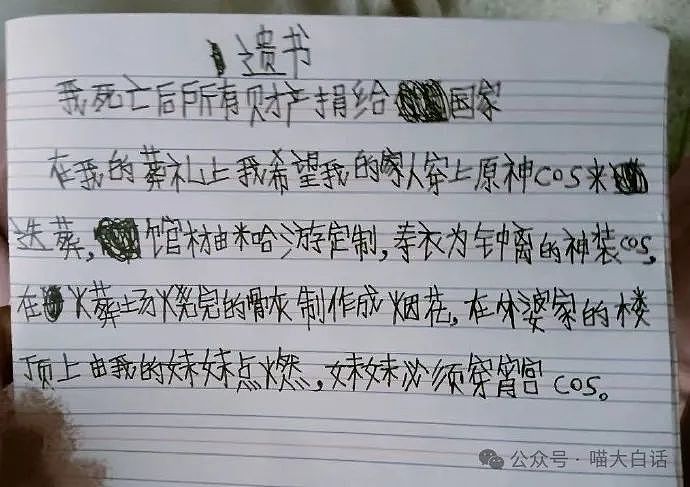 遗书
我死亡后所有财产捐给国家
在我的葬礼上我希望我的家人穿上原神cos来
送葬,馆材由米哈游定制,寿衣为钟离的神装cos,
在火葬场火烧完的骨灰制作成烟花,在外婆家的楼
顶上由我的妹妹点燃,妹妹必须穿宵宫cos。
公众号·喵大白话